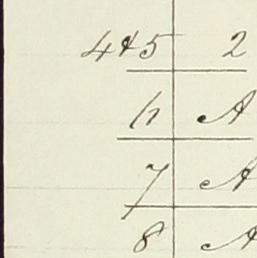 4&5 2
6 A
7 A
8 A